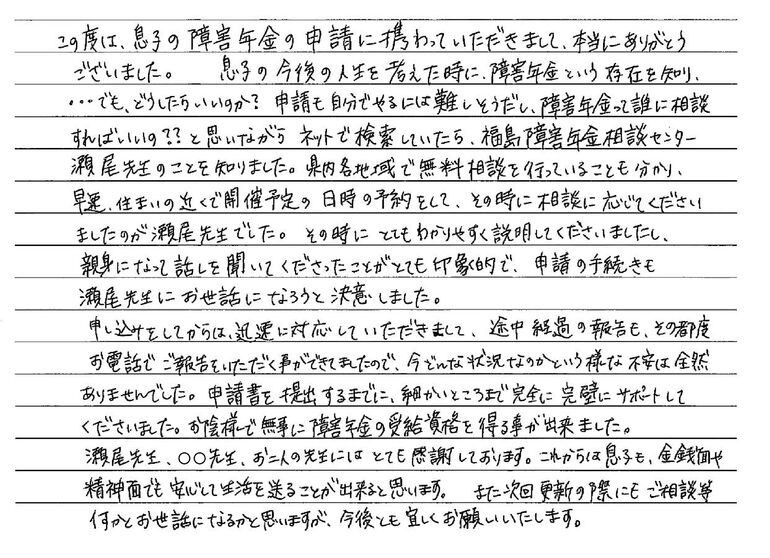 この度は、息子の障害年金の申請に携わっていただきまして、本当にありがとう
ございました。 息子の今後の人生を考えた時に、障害年金という存在を知り、
…でも、どうしたらいいのか？ 申請も自分でやるには難しそうだし、障害年金って誰に相談
すればいいの？？と思いながら ネットで検索していたら、福島障害年金相談センター
瀬尾先生のことを知りました。県内各地域で無料相談を行っていることも分かり、
早速、住まいの近くで開催予定の日時の予約をして、その時に相談に応じてください
ましたのが瀬尾先生でした。その時に とてもわかりやすく説明してくださいましたし、
親身になって話しを聞いてくださったことがとても印象的で、申請の手続きも
瀬尾先生にお世話になろうと決意しました。
申し込みをしてからは、迅速に対応していただきまして、途中経過の報告も、その都度
お電話でご報告をいただく事ができてましたので、今どんな状況なのかという様な不安は全然
ありませんでした。申請書を提出するまでに、細かいところまで完全に完璧にサポートして
くださいました。お陰様で無事に障害年金の受給資格を得る事が出来ました。
瀬尾先生、○○先生、お二人の先生にはとても感謝しております。これからは息子も、金銭面や
精神面でも安心して生活を送ることが出来ると思います。 また次回更新の際にもご相談等
何かとお世話になるかと思いますが、今後とも宜しくお願いいたします。